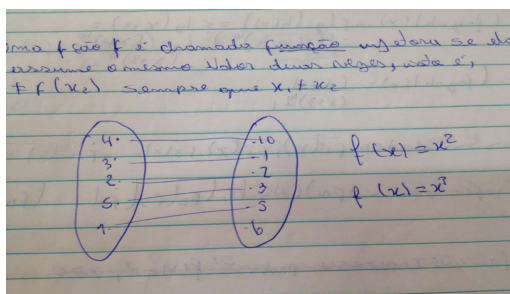 uma fção f é chamada função injetora se ela
assume o mesmo valor duas vezes, isto é,
≠ f(x₂) sempre que x₁ ≠ x₂
4. .10
3. .1
2. .2
5. .3
1. .5
.6
f(x) = x²
f(x) = x³